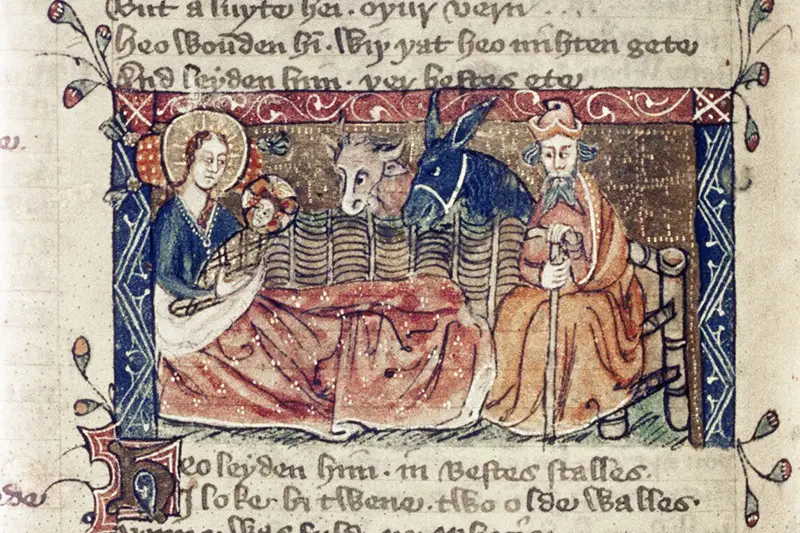 But a luyte hei · oþur vern
heo wouden hī · wiþ þat heo mihten gete
And leyden him · þer bestes ete
Heo leyden him · in Bestes stalles ·
I loke bi twene · two olde walles ·